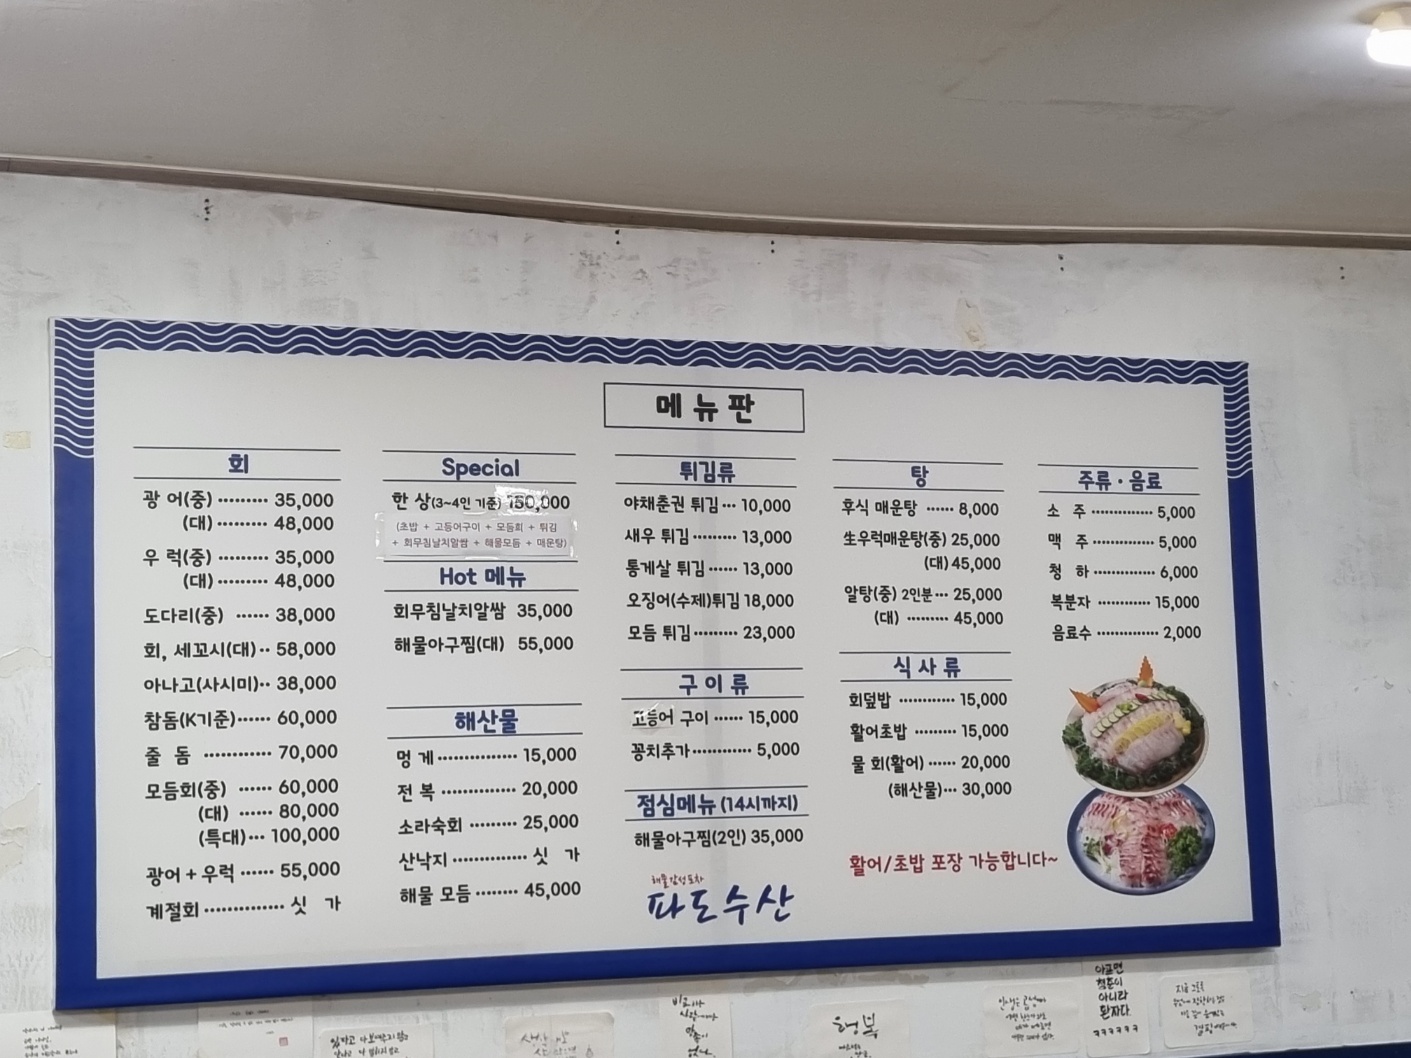 메뉴판
회
광 어(중) ········· 35,000
(대) ········· 48,000
우 럭(중) ········· 35,000
(대) ········· 48,000
도다리(중) ······ 38,000
회, 세꼬시(대)·· 58,000
아나고(사시미)·· 38,000
참돔(K기준)······ 60,000
줄 돔 ············ 70,000
모듬회(중) ······ 60,000
(대) ······ 80,000
(특대)··· 100,000
광어 + 우럭 ······ 55,000
계절회 ·············· 싯 가
Special
한 상(3~4인 기준) 150,000
(초밥 + 고등어구이 + 모듬회 + 튀김
+ 회무침날치알쌈 + 해물모듬 + 매운탕)
Hot 메뉴
회무침날치알쌈 35,000
해물아구찜(대) 55,000
해산물
멍 게 ·············· 15,000
전 복 ············· 20,000
소라숙회 ········· 25,000
산낙지 ············· 싯 가
해물 모듬 ········ 45,000
튀김류
야채춘권 튀김··· 10,000
새우 튀김········· 13,000
통게살 튀김······ 13,000
오징어(수제)튀김 18,000
모듬 튀김········· 23,000
구이류
고등어 구이 ······ 15,000
꽁치추가············ 5,000
점심메뉴 (14시까지)
해물아구찜(2인) 35,000
해물감성포차
파도수산
탕
후식 매운탕 ······ 8,000
生우럭매운탕(중) 25,000
(대) 45,000
알탕(중) 2인분··· 25,000
(대) ········· 45,000
식사류
회덮밥 ············ 15,000
활어초밥 ········· 15,000
물 회(활어) ······ 20,000
(해산물)··· 30,000
활어/초밥 포장 가능합니다~
주류 · 음료
소 주 ·············· 5,000
맥 주 ·············· 5,000
청 하 ·············· 6,000
복분자 ············ 15,000
음료수 ·············· 2,000
행복
아프면
청춘이
아니라
환자다.
ㅋㅋㅋㅋㅋㅋ